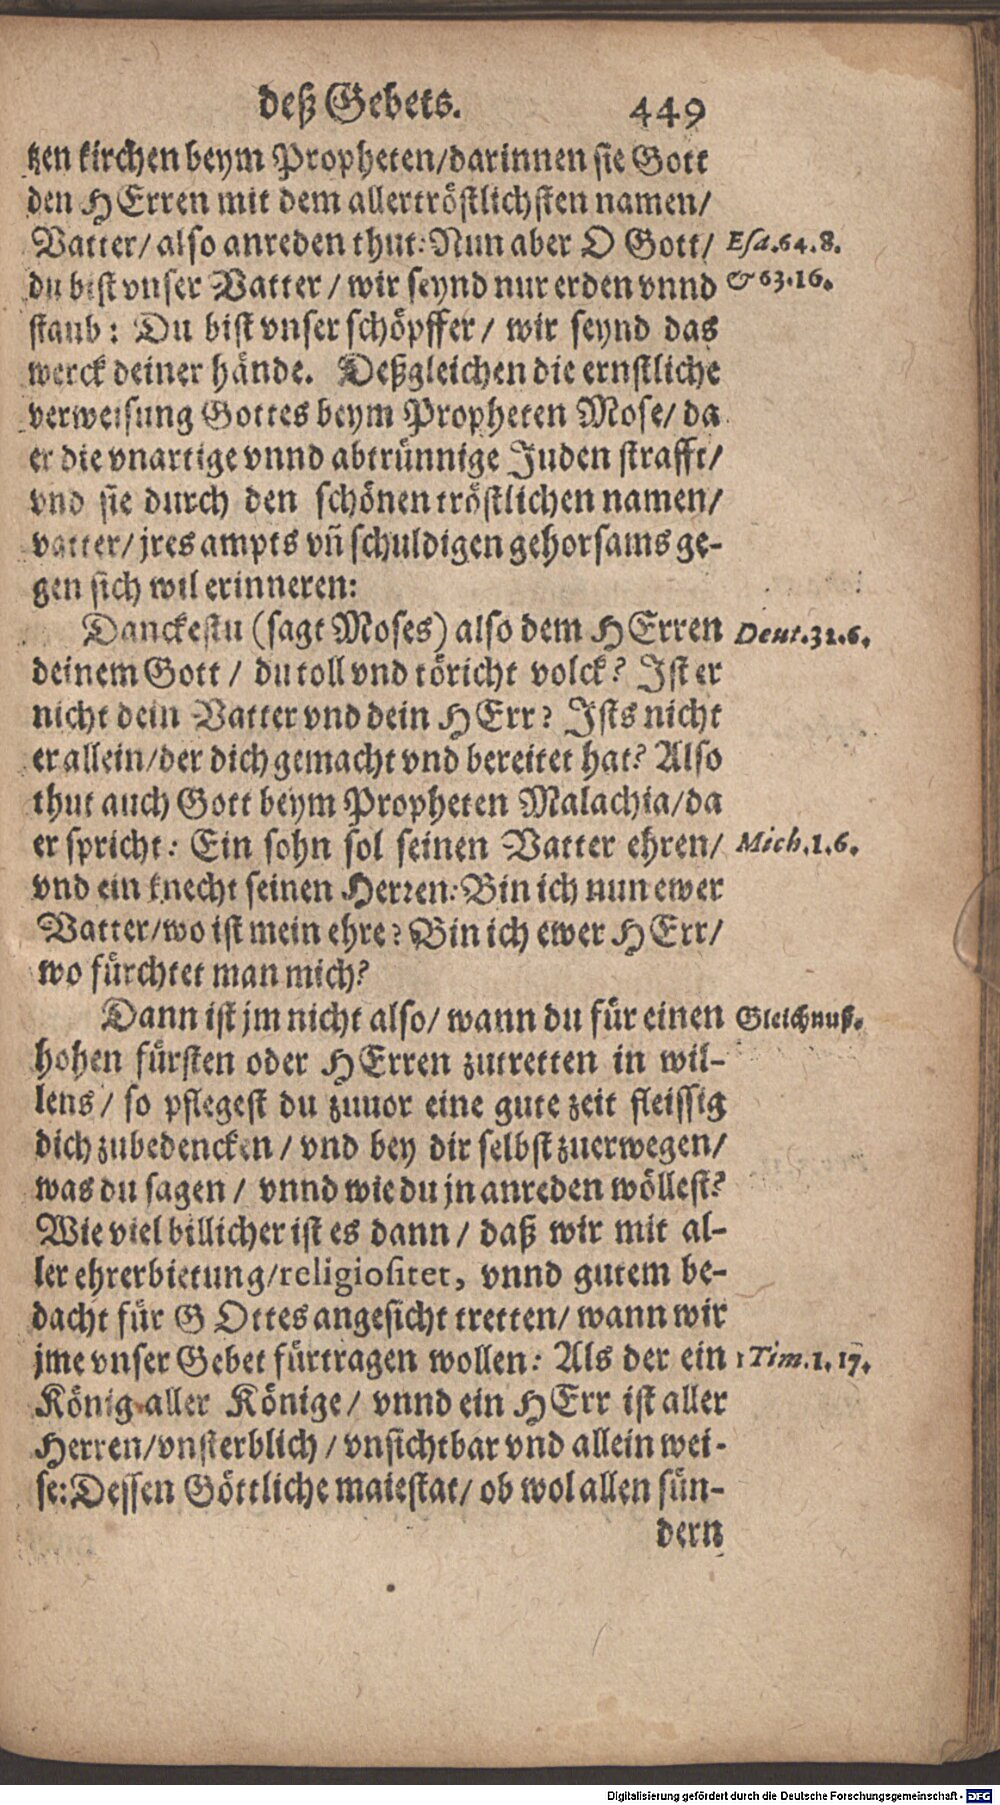 deß Gebets. 449
tzen kirchen beym Propheten/darinnen sie Gott
den HErren mit dem allertröstlichsten namen/
Vatter/ also anreden thut: Nun aber O Gott/ Esa.64.8.
du bist vnser Vatter / wir seynd nur erden vnnd & 63.16.
staub: Du bist vnser schöpffer / wir seynd das
werck deiner hände. Deßgleichen die ernstliche
verweisung Gottes beym Propheten Mose/ da
er die vnartige vnnd abtrünnige Juden strafft/
vnd sie durch den schönen tröstlichen namen/
vatter/ jres ampts vn̄ schuldigen gehorsams ge-
gen sich wil erinneren:
Danckestu (sagt Moses) also dem HErren Deut.32.6.
deinem Gott / du toll vnd töricht volck? Ist er
nicht dein Vatter vnd dein HErr? Ists nicht
er allein/der dich gemacht vnd bereitet hat? Also
thut auch Gott beym Propheten Malachia/da
er spricht: Ein sohn sol seinen Vatter ehren/ Mich.1.6.
vnd ein knecht seinen Herren: Bin ich nun ewer
Vatter/wo ist mein ehre? Bin ich ewer HErr/
wo fürchtet man mich?
Dann ist jm nicht also/ wann du für einen Gleichnuß.
hohen fürsten oder HErren zutretten in wil-
lens / so pflegest du zuuor eine gute zeit fleissig
dich zubedencken / vnd bey dir selbst zuerwegen/
was du sagen / vnnd wie du jn anreden wöllest?
Wie viel billicher ist es dann / daß wir mit al-
ler ehrerbietung/religiositet, vnnd gutem be-
dacht für GOttes angesicht tretten/ wann wir
jme vnser Gebet fürtragen wollen: Als der ein 1 Tim.1.17.
König aller Könige/ vnnd ein HErr ist aller
Herren/vnsterblich / vnsichtbar vnd allein wei-
se: Dessen Göttliche maiestat/ ob wol allen sün-
dern
Digitalisierung gefördert durch die Deutsche Forschungsgemeinschaft - DFG